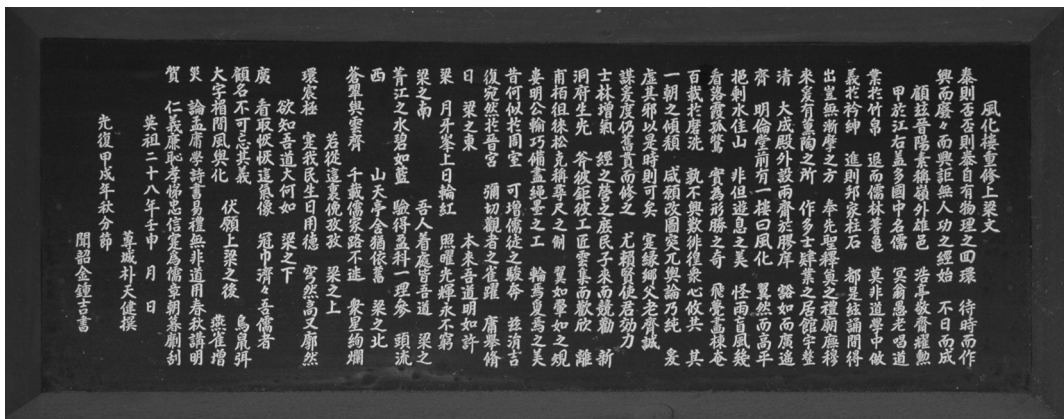 風化樓重修上梁文
泰則否否則泰自有物理之回環 待時而作
興而廢廢々而興詎無人功之經始 不日而成
顧玆晉陽素稱嶺外雄邑 浩亭敬齋耀勲
甲於江右盖多國中名儒 冥翁憲老唱道
業於竹帛 退而儒林耆龜 莫非道學中做
義於衿紳 進則邦家柱石 都是絃誦間得
出豈無漸磨之方 奉先聖釋奠之禮廟廡穆
來爰有薰陶之所 作多士肄業之居館宇整
清 大成殿外設兩齋於膠庠 豁如而廣遙
齊 明倫堂前有一樓曰風化 翼然而高平
挹剩水佳山 非但遊息之美 怪雨盲風幾
看落霞孤鶩 實為形勝之奇 飛甍畵棟奄
百載於磨洗 孰不興歎徘徊衆心攸共 其
一朝之傾頹 咸願改圖突兀輿論乃純 爰
虛其邪以是時則可矣 寔緣鄕父老齊誠
謀爰度仍舊貫而修之 尤賴賢使君効力
士林增氣 經之營之庶民子來而競勸 新
洞府生光 斧彼鉅彼工匠雲集而歡欣 離
甫栢徂徠松克稱尋尺之制 翼如翬如之規
婁明公輸巧備盡繩墨之工 輪焉奐焉之美
昔何似於閟室 可增儒徒之駿奔 玆涓吉
復宛然於晉宮 彌切觀者之雀躍 庸擧脩
日 梁之東 本來吾道明如許
梁 月牙峯上日輪紅 照曜光輝永不窮
梁之南 吾人看處皆吾道 梁之
菁江之水碧如藍 驗得盈科一理參 頭流
西 山天亭舍猶依舊 梁之北
蒼翠與雲齊 千載儒家路不迷 衆星絢爛
若從這裏俛孜孜 梁之上
環宸極 寔我民生日用德 寥然高又廓然
欲知吾道大何如 梁之下
廣 看取恢恢這氣像 冠巾濟濟吾儒者
顧名不可忘其義 伏願上梁之後 鳥鼠弭
大字楣間風與化 燕雀增
災 論孟庸學詩書易禮無非道用春秋講明
賀 仁義廉恥孝悌忠信寔為儒宰朝暮劘刮
英祖二十八年壬申 月 日
尊城朴天健撰
光復甲戌年秋分節
聞韶金鍾吉書